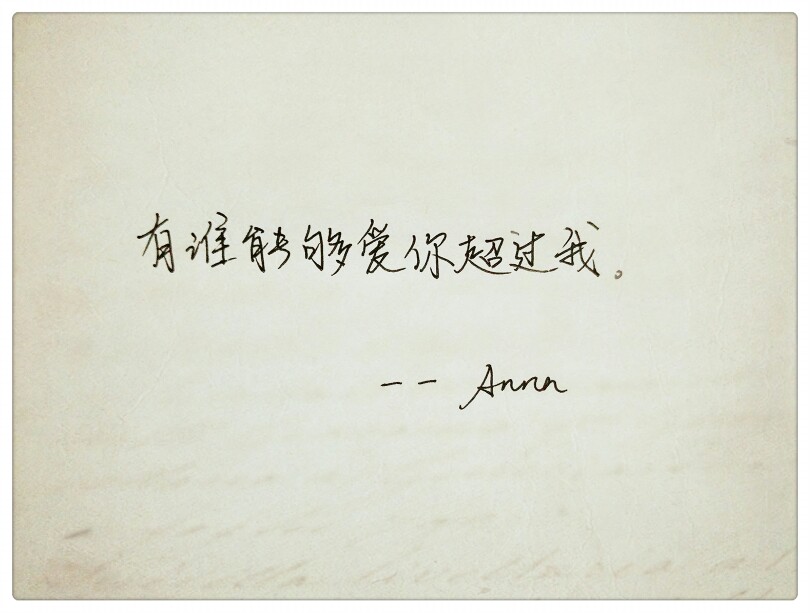 有谁能够爱你超过我。
-- Anna